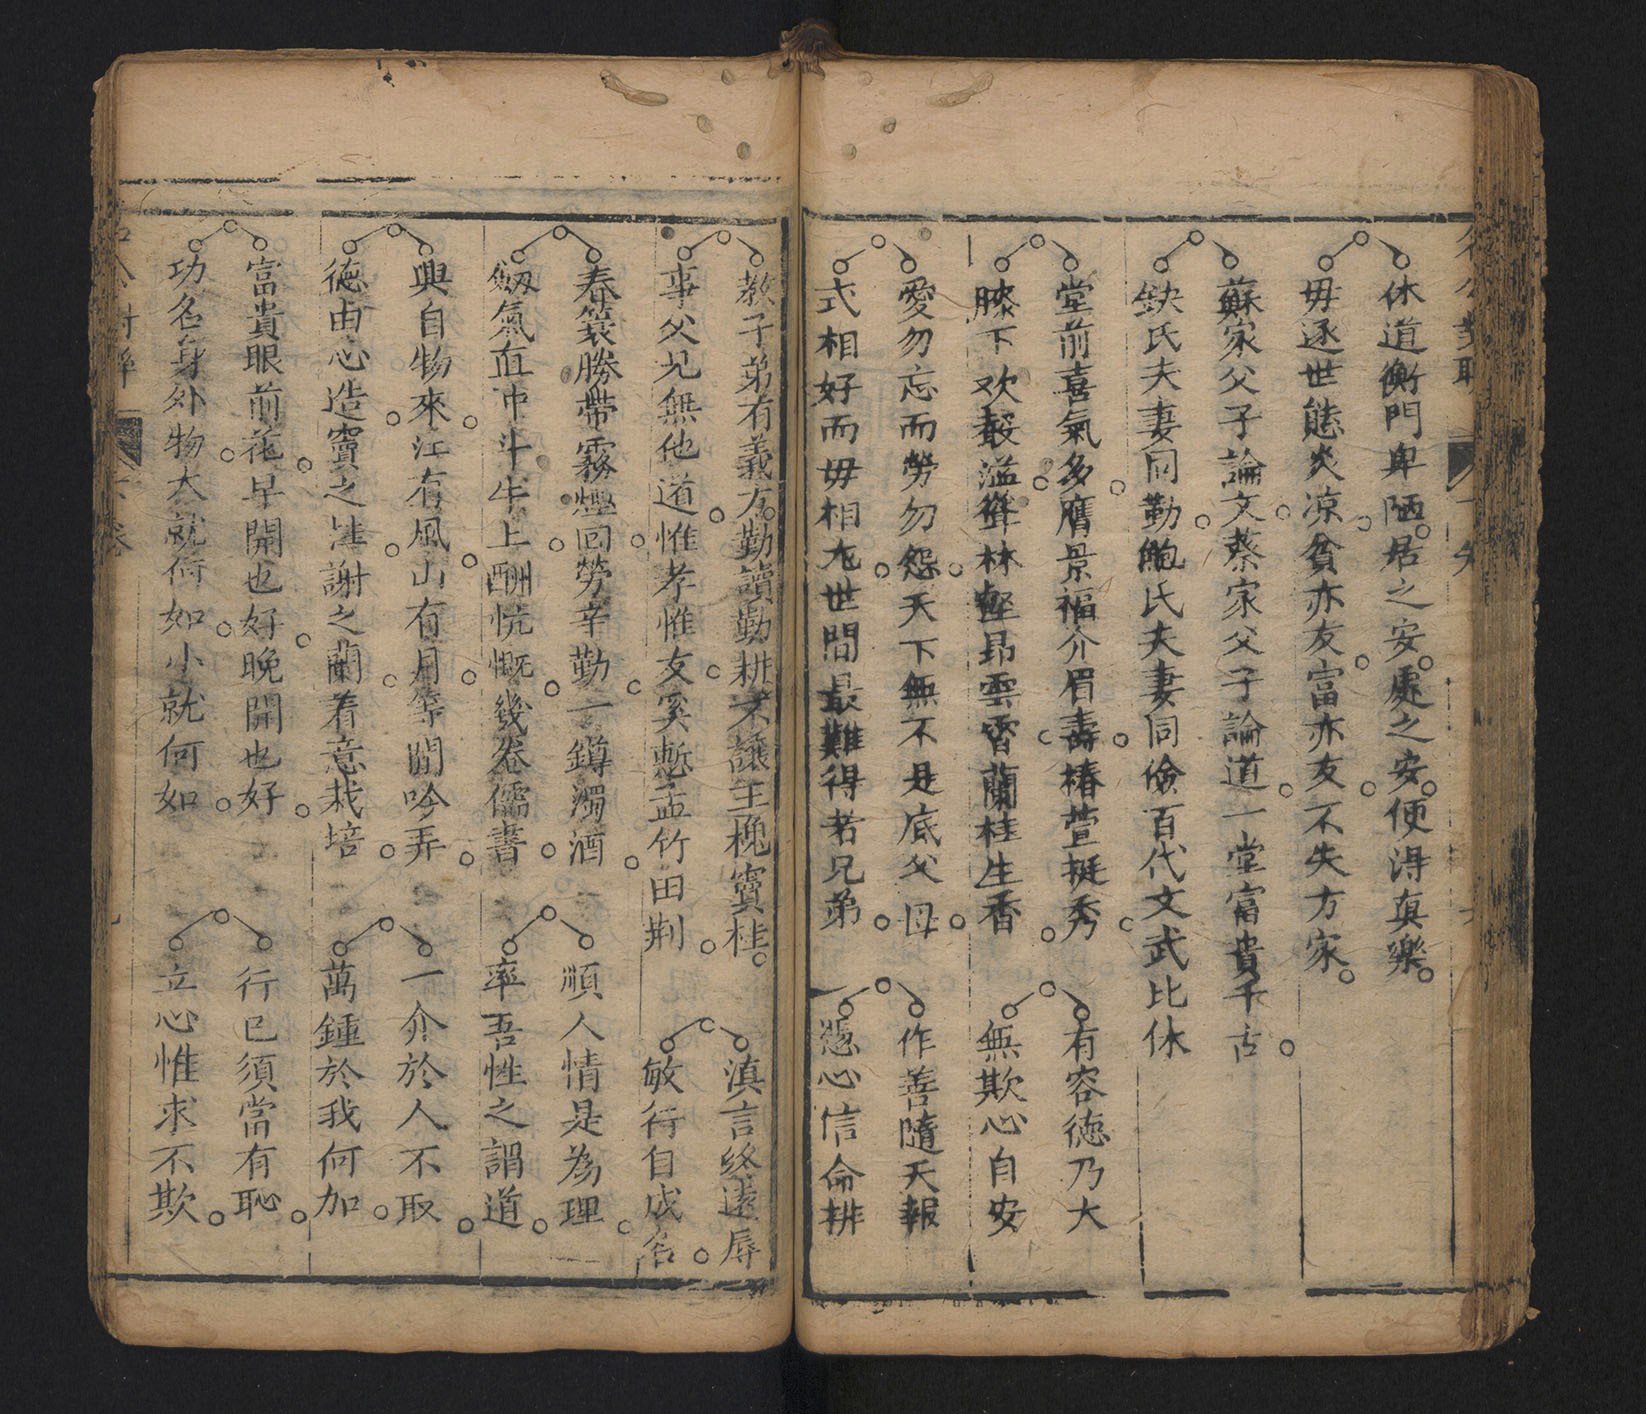 休道衡門卑陋居之安處之安便得真樂
毋逐世態炎凉貧亦友富亦友不失方家
蘇家父子論文蔡家父子論道一堂富貴千古
缺氏夫妻同勤鮑氏夫妻同儉百代文武比休
堂前喜氣多膺景福介眉壽椿萱挺秀
有容德乃大
膝下欢聲溢 林輕昂雲霄蘭桂生香
無欺心自安
愛勿忘而勞勿怨天下無不是底父母
作善隨天報
式相好而毋相尤世間最難得者兄弟
憑心信命排
教子弟有義方勤讀勤耕不讓王槐竇桂
滇言終遠辱
事父兄無他道惟孝惟友奚慙孟竹田荆
敏行自成名
春簑勝帶霧烟回勞辛勤一鐏濁酒
順人情是為理
劔氣直冲斗牛上酬忼慨幾卷儒書
率吾性之謂道
興自物來江有風山有月等閒吟弄
一介於人不取
德由心造竇之桂謝之蘭着意栽培
萬鍾於我何加
富貴眼前花早開也好晚開也好
行已須當有恥
功名身外物大就何如小就何如
立心惟求不欺